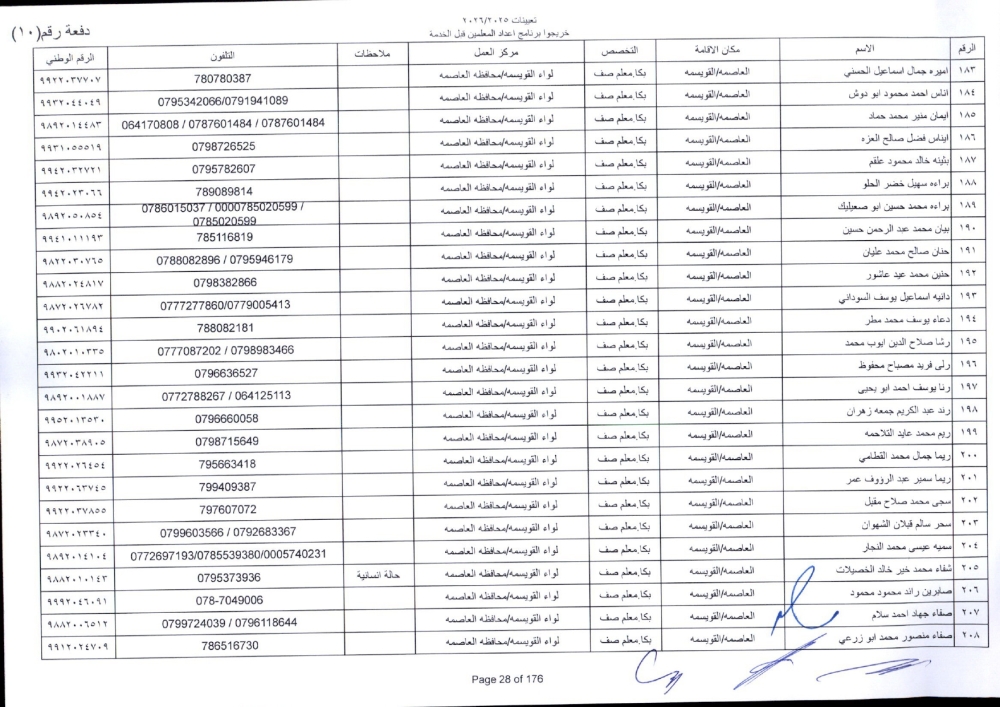 تعيينات ٢٠٢٦/٢٠٢٥
خريجوا برنامج اعداد المعلمين قبل الخدمة
دفعة رقم(١٠)
الرقم الاسم مكان الاقامة التخصص مركز العمل ملاحظات التلفون الرقم الوطني
١٨٣ اميره جمال اسماعيل الحسني العاصمه/القويسمه بكا.معلم صف لواء القويسمه/محافظه العاصمه 780780387 ٩٩٢٢٠٣٧٧٠٧
١٨٤ اناس احمد محمود ابو دوش العاصمه/القويسمه بكا.معلم صف لواء القويسمه/محافظه العاصمه 0795342066/0791941089 ٩٩٣٢٠٤٤٠٤٩
١٨٥ ايمان منير محمد حماد العاصمه/القويسمه بكا.معلم صف لواء القويسمه/محافظه العاصمه 064170808 / 0787601484 / 0787601484 ٩٨٩٢٠١٤٤٨٣
١٨٦ ايناس فضل صالح العزه العاصمه/القويسمه بكا.معلم صف لواء القويسمه/محافظه العاصمه 0798726525 ٩٩٣١٠٥٥٥١٩
١٨٧ بثينه خالد محمود علقم العاصمه/القويسمه بكا.معلم صف لواء القويسمه/محافظه العاصمه 0795782607 ٩٩٤٢٠٣٢٧٢١
١٨٨ براءه سهيل خضر الحلو العاصمه/القويسمه بكا.معلم صف لواء القويسمه/محافظه العاصمه 789089814 ٩٩٤٢٠٢٣٠٦٦
١٨٩ براءه محمد حسين ابو صعيليك العاصمه/القويسمه بكا.معلم صف لواء القويسمه/محافظه العاصمه 0786015037 / 0000785020599 / 0785020599 ٩٨٩٢٠٥٠٨٥٤
١٩٠ بيان محمد عبد الرحمن حسين العاصمه/القويسمه بكا.معلم صف لواء القويسمه/محافظه العاصمه 785116819 ٩٩٤١٠١١١٩٣
١٩١ حنان صالح محمد عليان العاصمه/القويسمه بكا.معلم صف لواء القويسمه/محافظه العاصمه 0788082896 / 0795946179 ٩٨٢٢٠٣٠٧٦٥
١٩٢ حنين محمد عيد عاشور العاصمه/القويسمه بكا.معلم صف لواء القويسمه/محافظه العاصمه 0798382866 ٩٨٨٢٠٢٤٨١٧
١٩٣ دانيه اسماعيل يوسف السوداني العاصمه/القويسمه بكا.معلم صف لواء القويسمه/محافظه العاصمه 0777277860/0779005413 ٩٨٧٢٠٢٦٧٨٢
١٩٤ دعاء يوسف محمد مطر العاصمه/القويسمه بكا.معلم صف لواء القويسمه/محافظه العاصمه 788082181 ٩٩٠٢٠٦١٨٩٤
١٩٥ رشا صلاح الدين ايوب محمد العاصمه/القويسمه بكا.معلم صف لواء القويسمه/محافظه العاصمه 0777087202 / 0798983466 ٩٨٠٢٠١٠٣٣٥
١٩٦ رلى فريد مصباح محفوظ العاصمه/القويسمه بكا.معلم صف لواء القويسمه/محافظه العاصمه 0796636527 ٩٩٣٢٠٤٢٢١١
١٩٧ رنا يوسف احمد ابو يحيى العاصمه/القويسمه بكا.معلم صف لواء القويسمه/محافظه العاصمه 0772788267 / 064125113 ٩٨٩٢٠٠١٨٨٧
١٩٨ رند عبد الكريم جمعه زهران العاصمه/القويسمه بكا.معلم صف لواء القويسمه/محافظه العاصمه 0796660058 ٩٩٥٢٠١٣٥٣٠
١٩٩ ريم محمد عايد التلاحمه العاصمه/القويسمه بكا.معلم صف لواء القويسمه/محافظه العاصمه 0798715649 ٩٨٧٢٠٣٨٩٠٥
٢٠٠ ريما جمال محمد القطامي العاصمه/القويسمه بكا.معلم صف لواء القويسمه/محافظه العاصمه 795663418 ٩٩٢٢٠٢٦٤٥٤
٢٠١ ريما سمير عبد الرؤوف عمر العاصمه/القويسمه بكا.معلم صف لواء القويسمه/محافظه العاصمه 799409387 ٩٩٢٢٠٦٣٧٤٥
٢٠٢ سجى محمد صلاح مقبل العاصمه/القويسمه بكا.معلم صف لواء القويسمه/محافظه العاصمه 797607072 ٩٩٢٢٠٣٧٨٥٥
٢٠٣ سحر سالم قبلان الشهوان العاصمه/القويسمه بكا.معلم صف لواء القويسمه/محافظه العاصمه 0799603566 / 0792683367 ٩٨٧٢٠٢٣٣٤٠
٢٠٤ سميه عيسى محمد النجار العاصمه/القويسمه بكا.معلم صف لواء القويسمه/محافظه العاصمه 0772697193/0785539380/0005740231 ٩٨٩٢٠١٤١٠٤
٢٠٥ شفاء محمد خير خالد الخصيلات العاصمه/القويسمه بكا.معلم صف لواء القويسمه/محافظه العاصمه حالة انسانية 0795373936 ٩٨٨٢٠١٠١٤٣
٢٠٦ صابرين رائد محمود محمود العاصمه/القويسمه بكا.معلم صف لواء القويسمه/محافظه العاصمه 078-7049006 ٩٩٩٢٠٤٦٠٩١
٢٠٧ صفاء جهاد احمد سلام العاصمه/القويسمه بكا.معلم صف لواء القويسمه/محافظه العاصمه 0799724039 / 0796118644 ٩٨٨٢٠٠٦٥١٢
٢٠٨ صفاء منصور محمد ابو زرعي العاصمه/القويسمه بكا.معلم صف لواء القويسمه/محافظه العاصمه 786516730 ٩٩١٢٠٢٤٧٠٩
Page 28 of 176